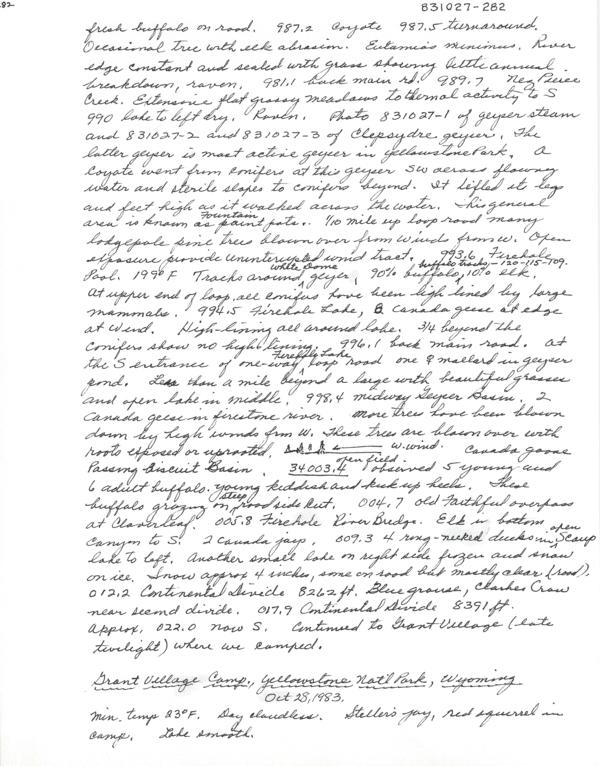 282
831027-282
fresh buffalo on road. 987.2 Coyote 987.5 turnaround.
Occasional tree with elk abrasion. Eutamias minimus. River
edge constant and sealed with grass showing little annual
breakdown, raven. 981.1 back main rd. 989.7 Nez Perce
Creek. Extensive flat grassy meadows to thermal activity to S
990 lake to left dry. Raven. Photo 831027-1 of geyser steam
and 831027-2 and 831027-3 of Clepsydre geyser. The
latter geyser is most active geyser in Yellowstone Park. A
Coyote went from conifers at this geyser SW across flowing
water and sterile slopes to conifers beyond. It lifted its legs
and feet high as it walked across the water. This general
area is known as Fountain paint pots. 1/10 mile up loop road many
lodgepole pine trees blown over from winds from W. Open
exposure provide uninterrupted wind tract. 993.6 Firehole
Pool. 199°F Tracks around White Dome geyser, 90% buffalo, 10% elk. buffalo tracks, -120-115-109.
At upper end of loop all conifers have been high lined by large
mammals. 994.5 Firehole Lake, 8 Canada geese at edge
at W end. High-lining all around lake. 3/4 beyond the
conifers show no high lining. 996.1 back main road. At
the S entrance of one-way Firefly Lake loop road one ♀ mallard in geyser
pond. Less than a mile beyond a large with beautiful grasses
and open lake in middle. 998.4 midway Geyser Basin. 2
Canada geese in firestone river. More trees have been blown
down by high winds frm W. These trees are blown over with
roots exposed or uprooted. open field W. wind. Canada goose
Passing Biscuit Basin. 34003.4 I observed 5 young and
6 adult buffalo. young kiddish and kick up heels. These
buffalo grazing on steep road side cut. 004.7 old Faithful overpass
at Cloverleaf. 005.8 Firehole River Bridge. Elk in bottom
Canyon to S. 2 Canada jays. 009.3 4 ring-necked ducks in open Scaup
lake to left. Another small lake on right side frozen and snow
on ice. Snow approx 4 inches, some on road but mostly clear (road).
012.2 Continental Divide 8262 ft. Blue grouse, Clarkes Crow
near second divide. 017.9 Continental Divide 8391 ft.
Approx. 022.0 now S. Continued to Grant Village (late
twilight) where we camped.
Grant Village Camp., Yellowstone Nat'l Park, Wyoming
Oct 28, 1983.
Min. temp 23°F. Day cloudless. Steller's jay, red squirrel in
camp. Lake smooth.